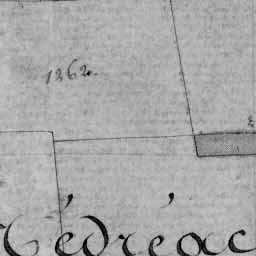 1262.
Médréac